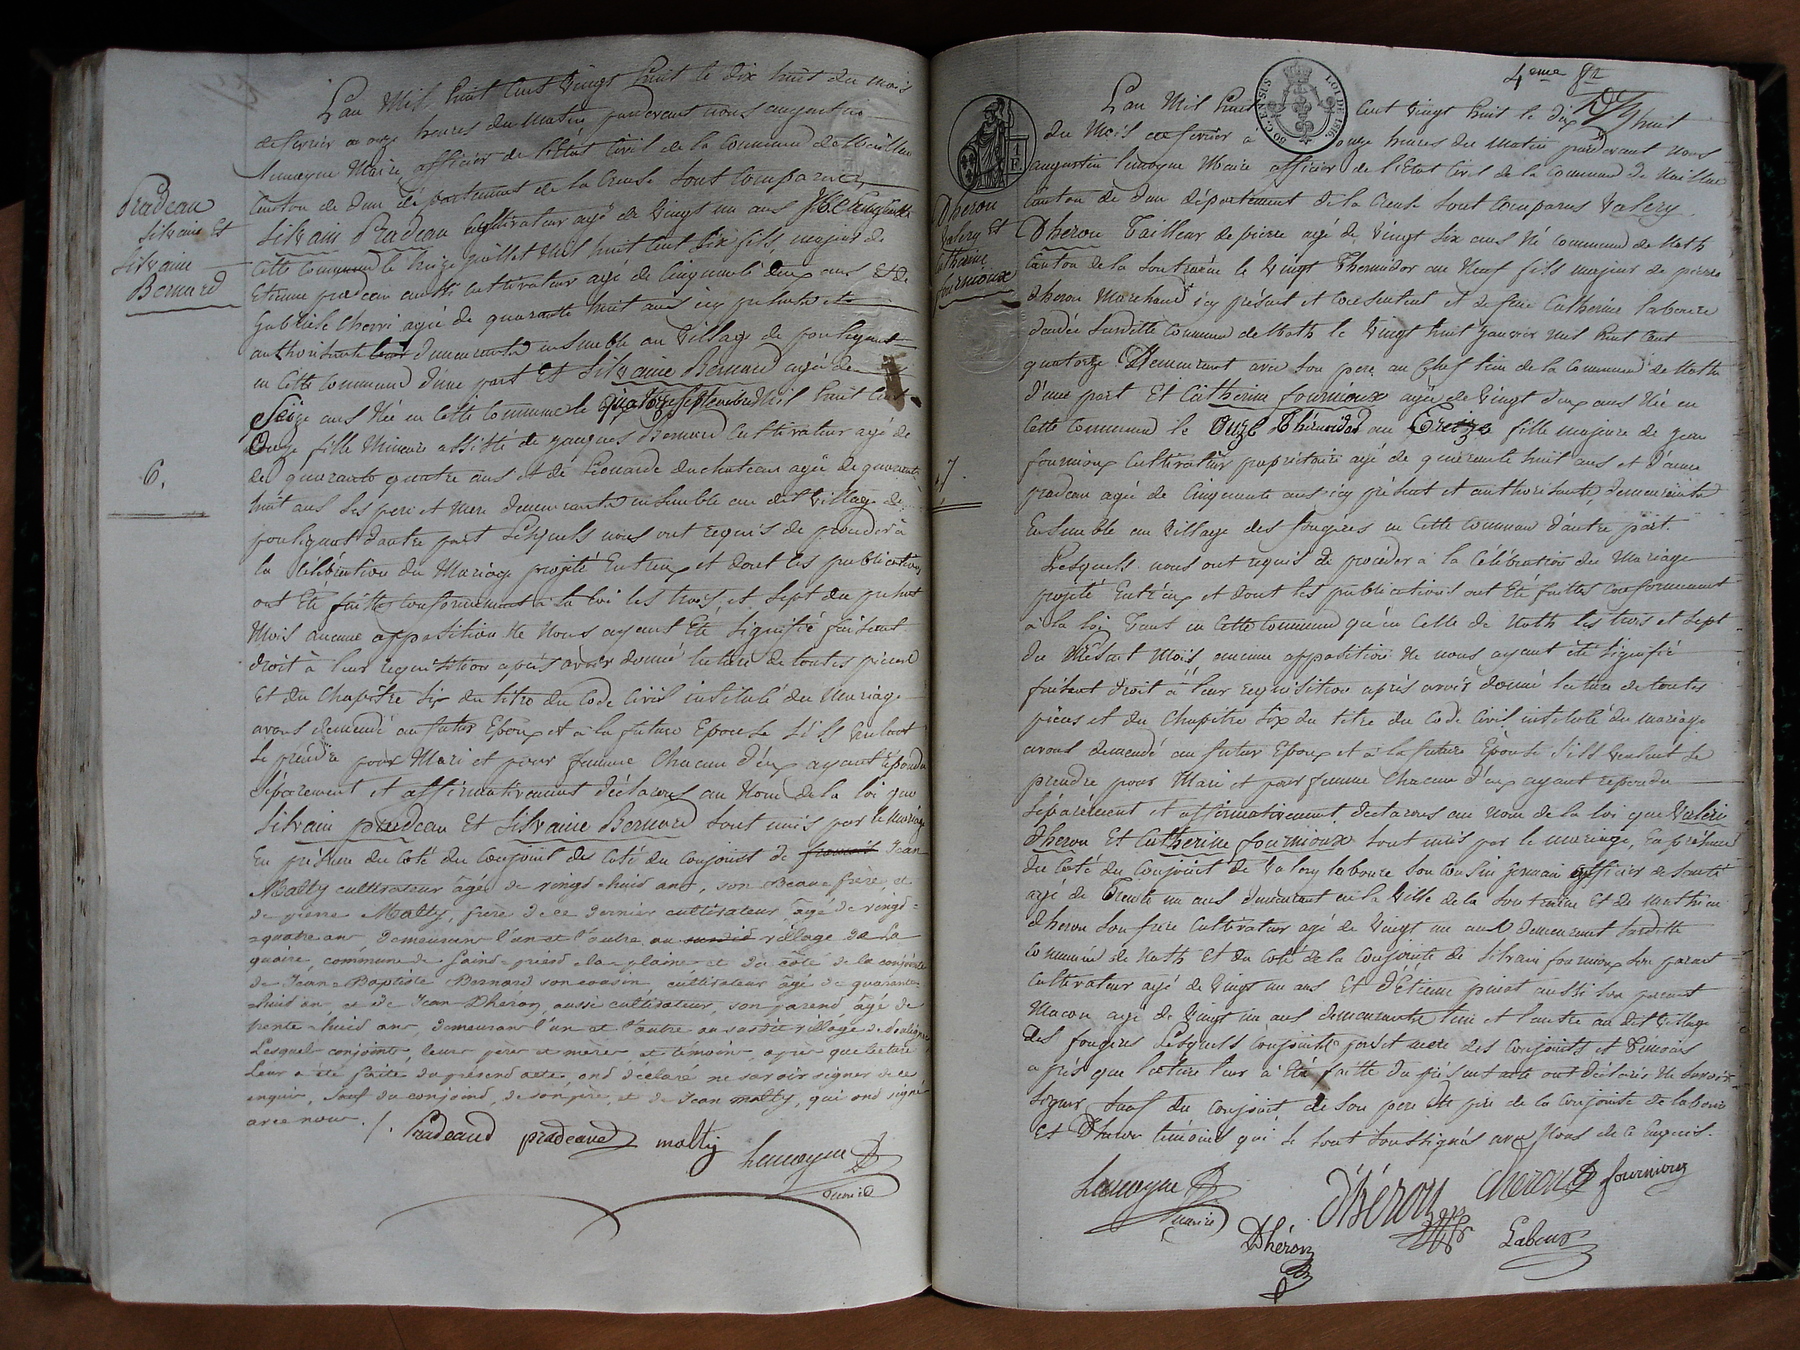 L'an Mil huit Cent vingt huit le dix huit du mois
de fevrier a onze heures du matin pardevant nous augustin
Lemoyne Maire officier de l'état Civil de la Commune de
Canton de dun département de la Creuse Sont Comparus
Silvain Pradeau Cultivateur agé de vingt un ans Né en
Cette Commune le treize juillet Mil huit Cent Six fils majeur de
Etienne pradeau aussi cultivateur agé de Cinquante deux ans Et de
Gabrielle Cherri agée de quarante huit ans icy présents et
authorisant demeurants ensemble au Village de pouligout
en Cette Commune d'une part Et Silvaine Bernard agée de
Seize ans Née en Cette Commune le quatorze Septembre Mil huit Cent
Onze fille Mineure assistée de jacques Bernard Cultivateur agé de
de quarante quatre ans et de Léonarde duchateau agée de quarante
huit ans Ses pere et Mere demeurants ensemble au dit Village de
pouligout d'autre part Lesquels nous ont requis de proceder à
la Célébration du Mariage projeté Entreux et dont les publications
ont Été faittes Conformément à la loi les trois, et Sept du présent
Mois aucune opposition Ne Nous ayant Eté Signifié faisant
droit à leur requisition après avoir donné lecture de toutes pieces
Et du Chapitre Six du titre du Code Civil intitulé du Mariage
avons demandé au futur Epoux et à la future Epouse S'ils veulent
Se prendre pour Mari et pour femme Chacun d'eux ayant répondu
Séparement et affirmativement déclarons au Nom de la loi que
Silvain pradeau Et Silvaine Bernard Sont unis par le mariage
En présence du Coté du Conjoint des Coté du Conjoint de Jean
Malty cultivateur âgé de vingt-huit ans, son Beau-frère, et
de pierre Malty, frère de ce dernier cultivateur âgé de vingt-
-quatre ans, demeurans l'un et l'autre au susdit village de La
quaire, commune de Saint-priest-la-plaine et du côté de la conjointe
de Jean-Baptiste Bernard son cousin, cultivateur âgé de quarante-
-huit ans, et de Jean Dhéron, aussi cultivateur, son parent, âgé de
trente-huit ans, demeurans l'un et l'autre au susdit village
Lesquels conjoints, leurs pères et mères et témoins, après que lecture
leur a été faite du présent acte, ont déclaré ne savoir signer de ce
enquis, Sauf du conjoint, de son père, et de Jean malty, qui ont signé
avec nous ./.
Pradeaud pradeaud malty Lemoyne
maire
Pradeau
Silvain Et
Silvaine
Bernard
6.
4eme
L'an Mil huit Cent Vingt huit le dix huit
du Mois de fevrier à onze heures du matin pardevant nous
augustin Lemoyne Maire officier de l'Etat Civil de la Commune de
Canton de dun département de la Creuse Sont Comparus Valery
Dheron Tailleur de pierre agé de Vingt Six ans Né Commune de Noth
Canton de la Soutraine le Vingt Thermidor an Neuf fils majeur de pierre
dheron Marchand icy présent et Consentant et de feue Catherine laboure
décédée Surditte Commune de Noth le Vingt huit janvier mil huit Cent
quatorze Demeurant avec Son pere au Chef lieu de la Commune de Noth
d'une part Et Catherine fournioux agée de Vingt deux ans Née en
Cette Commune le Onze Thérmidor an Treize fille majeure de jean
fournioux Cultivateur proprietaire agé de quarante huit ans et d'anne
pradeau agée de Cinquante ans icy présent et authorisants demeurants
Ensemble au Village des fougeres en Cette Commune d'autre part.
Lesquels nous ont requis de proceder à la Célébration du Mariage
projeté Entr'eux et dont les publications ont Eté faittes Conformement
à la loi Tant en Cette Commune qu'en Celle de Noth les trois et Sept
du Présent Mois, aucune opposition Ne nous ayant été Signifié
faisant droit à leur requisition après avoir donné lecture de toutes
pieces et du Chapitre Six du titre du Code Civil intitulé du mariage
avons demandé au futur Epoux et à la future Epouse S'ils veulent Se
prendre pour Mari et pour femme Chacun d'eux ayant répondu
Séparément et affirmativement, declarons au nom de la loi que Valéri
dheron Et Catherine fournioux Sont unis par le mariage, En présence
du Coté du Conjoint de Valery laboure Son Cousin germain officier de Santé
agé de Trente un ans demeurant en la Ville de la Soutraine Et de Mathieu
dheron Son frere Cultivateur agé de Vingt un ans demeurant Surditte
Commune de Noth Et du Coté de la Conjointe de Silvain fournioux Son parent
Cultivateur agé de Vingt un ans Et d'Etienne pinot aussi Son parent
Macon agé de Vingt un ans demeurants l'un et l'autre au dit Village
des fougeres Lesquels Conjoints peres et mere des Conjoints et Témoins
après que lecture leur à Eté faitte du présent acte ont déclaré Ne Savoir
Signer, Sauf du Conjoint de Son pere du père de la Conjointe de laboure
Et Dheron temoins qui Se Sont Soussignés avec Nous de Ce Enquis.
Lemoyne dhéron cheron fournioux
maire
Dhéron Labour
Dheron
Valery Et
Catherine
fournioux
7
1 F
LOI DE 1816